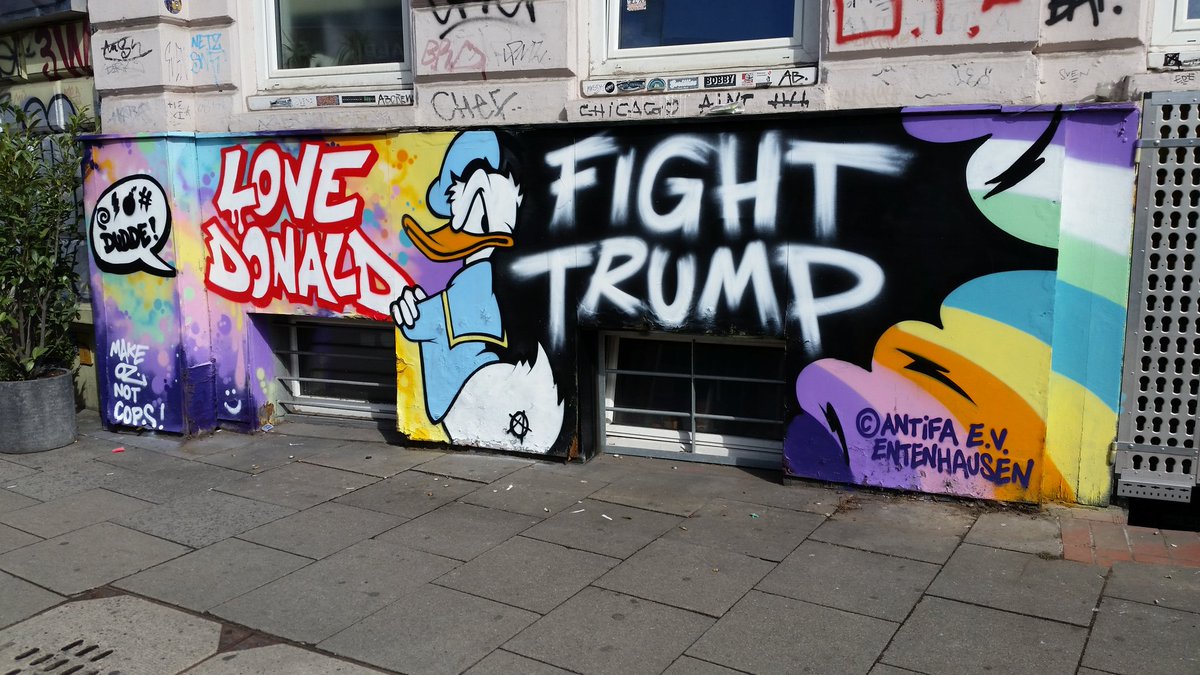 BOBBY
AB.
CHEX
CHICAGO AIN'T
@ #
DUDDE!
LOVE
DONALD
FIGHT
TRUMP
MAKE
OZ
NOT
COPS!
© ANTiFA E.V.
ENTENHAUSEN